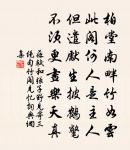 柏堂南畔竹如雲
此閣何人是主人
但遣先生披鶴氅
不須更畫樂天真
蘇軾和張子野見寄三
絕句竹閣見憶詞典網
集